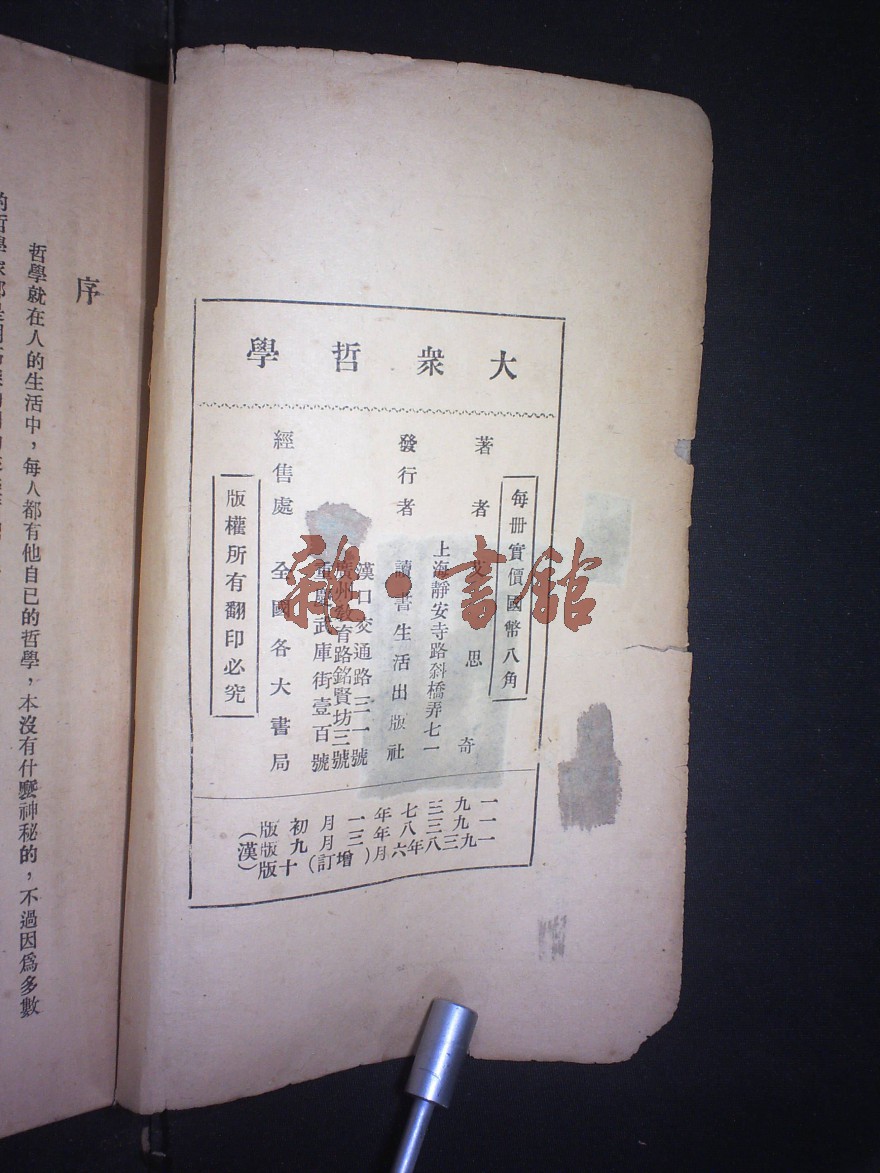 大衆哲學
每册實價國幣八角
著者 思奇
上海靜安寺路斜橋弄七一
發行者 讀書生活出版社
漢口交通路三一號
廣州教育路銘賢坊三號
重慶武庫街壹百號
經售處 全國各大書局
版權所有翻印必究
一九三七年一月初版
一九三八年三月九版
一九三八年六月(增訂)十版(漢)
雜·書館
序
哲學就在人的生活中，每人都有他自己的哲學，本沒有什麼神秘的，不過因爲多數